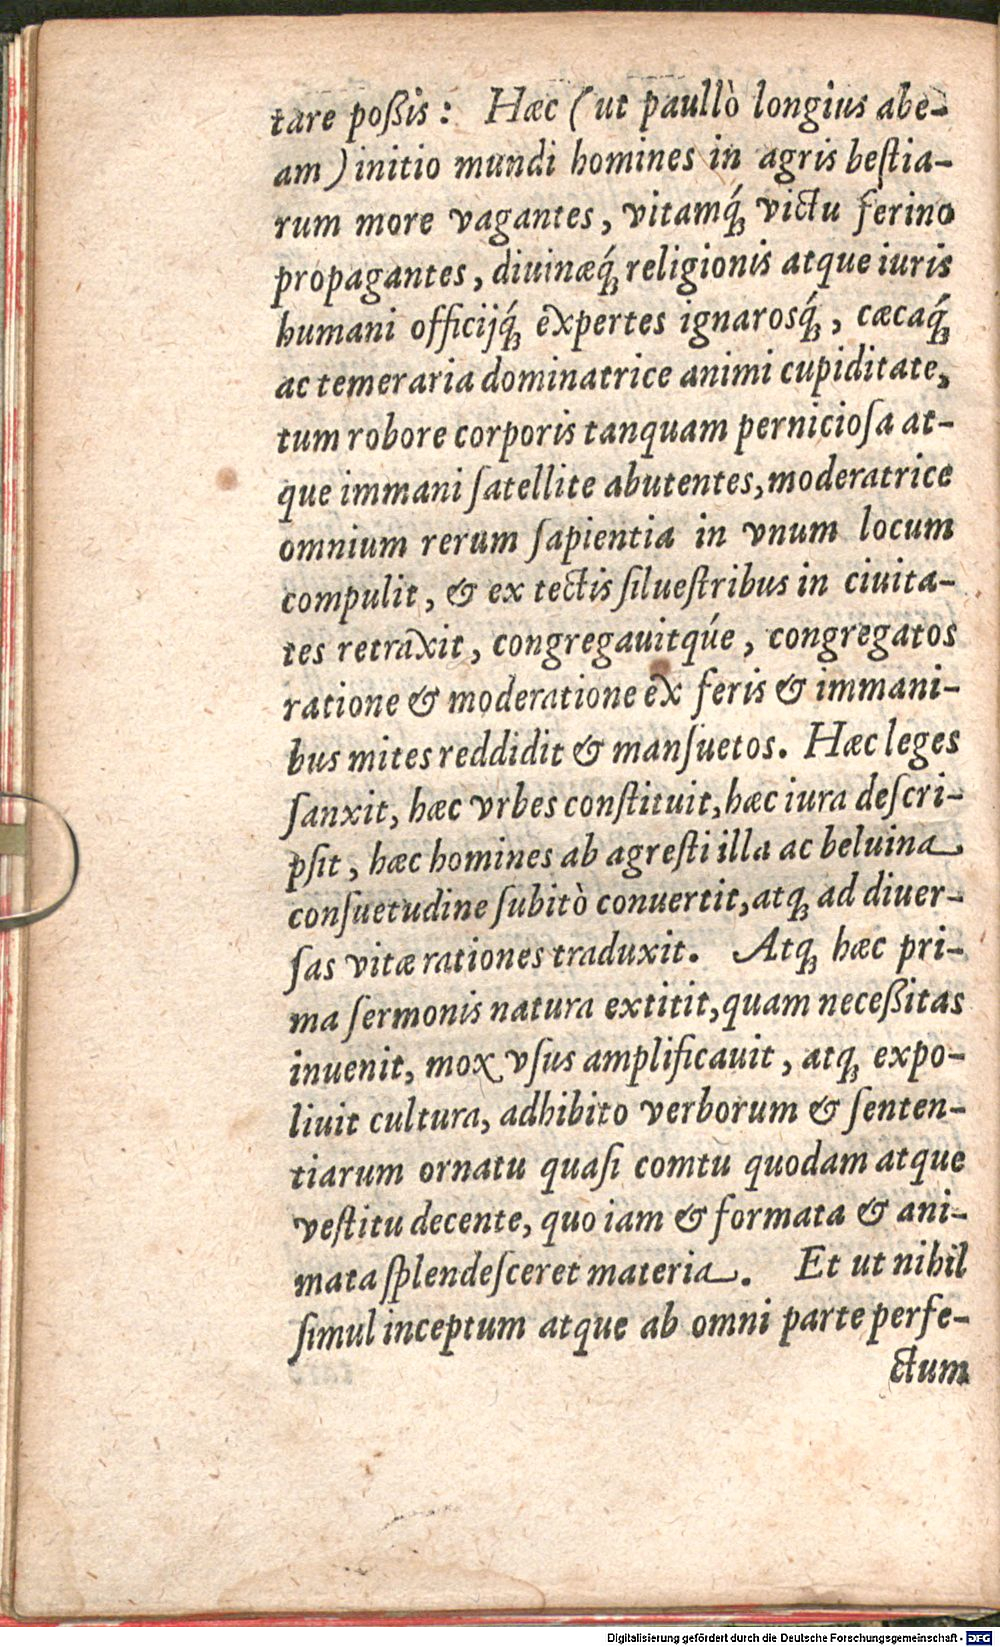 tare poßis: Hæc (ut paullò longius abe-
am) initio mundi homines in agris beſtia-
rum more vagantes, vitamq́ꝫ victu ferino
propagantes, diuinæq́ꝫ religionis atque iuris
humani officijq́ꝫ expertes ignarosq́ꝫ, cæcaq́ꝫ
ac temeraria dominatrice animi cupiditate,
tum robore corporis tanquam pernicioſa at-
que immani ſatellite abutentes, moderatrice
omnium rerum ſapientia in vnum locum
compulit, & ex tectis ſilueſtribus in ciuita-
tes retraxit, congregauitq́ue, congregatos
ratione & moderatione ex feris & immani-
bus mites reddidit & manſuetos. Hæc leges
ſanxit, hæc vrbes conſtituit, hæc iura deſcri-
pſit, hæc homines ab agreſti illa ac beluina
conſuetudine ſubitò conuertit, atqꝫ ad diuer-
ſas vitæ rationes traduxit. Atqꝫ hæc pri-
ma ſermonis natura extitit, quam neceßitas
inuenit, mox vſus amplificauit, atqꝫ expo-
liuit cultura, adhibito verborum & ſenten-
tiarum ornatu quaſi comtu quodam atque
veſtitu decente, quo iam & formata & ani-
mata ſplendeſceret materia. Et ut nihil
ſimul inceptum atque ab omni parte perfe-
ctum
Digitalisierung gefördert durch die Deutsche Forschungsgemeinschaft - DFG